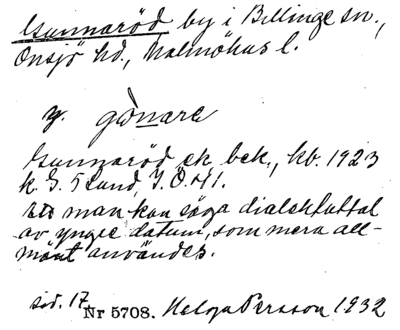 Gunnaröd by i Billinge sn.,
Onsjö hd., Malmöhus l.
y. gònare
Gunnaröd ek. bek., kb. 1923
k. G. 5 Lund, I. Ö.
man kan säga dialektuttal
av yngre datum, som mera all-
mänt användes.
sid. 17. Nr 5708. Helga Persson 1932